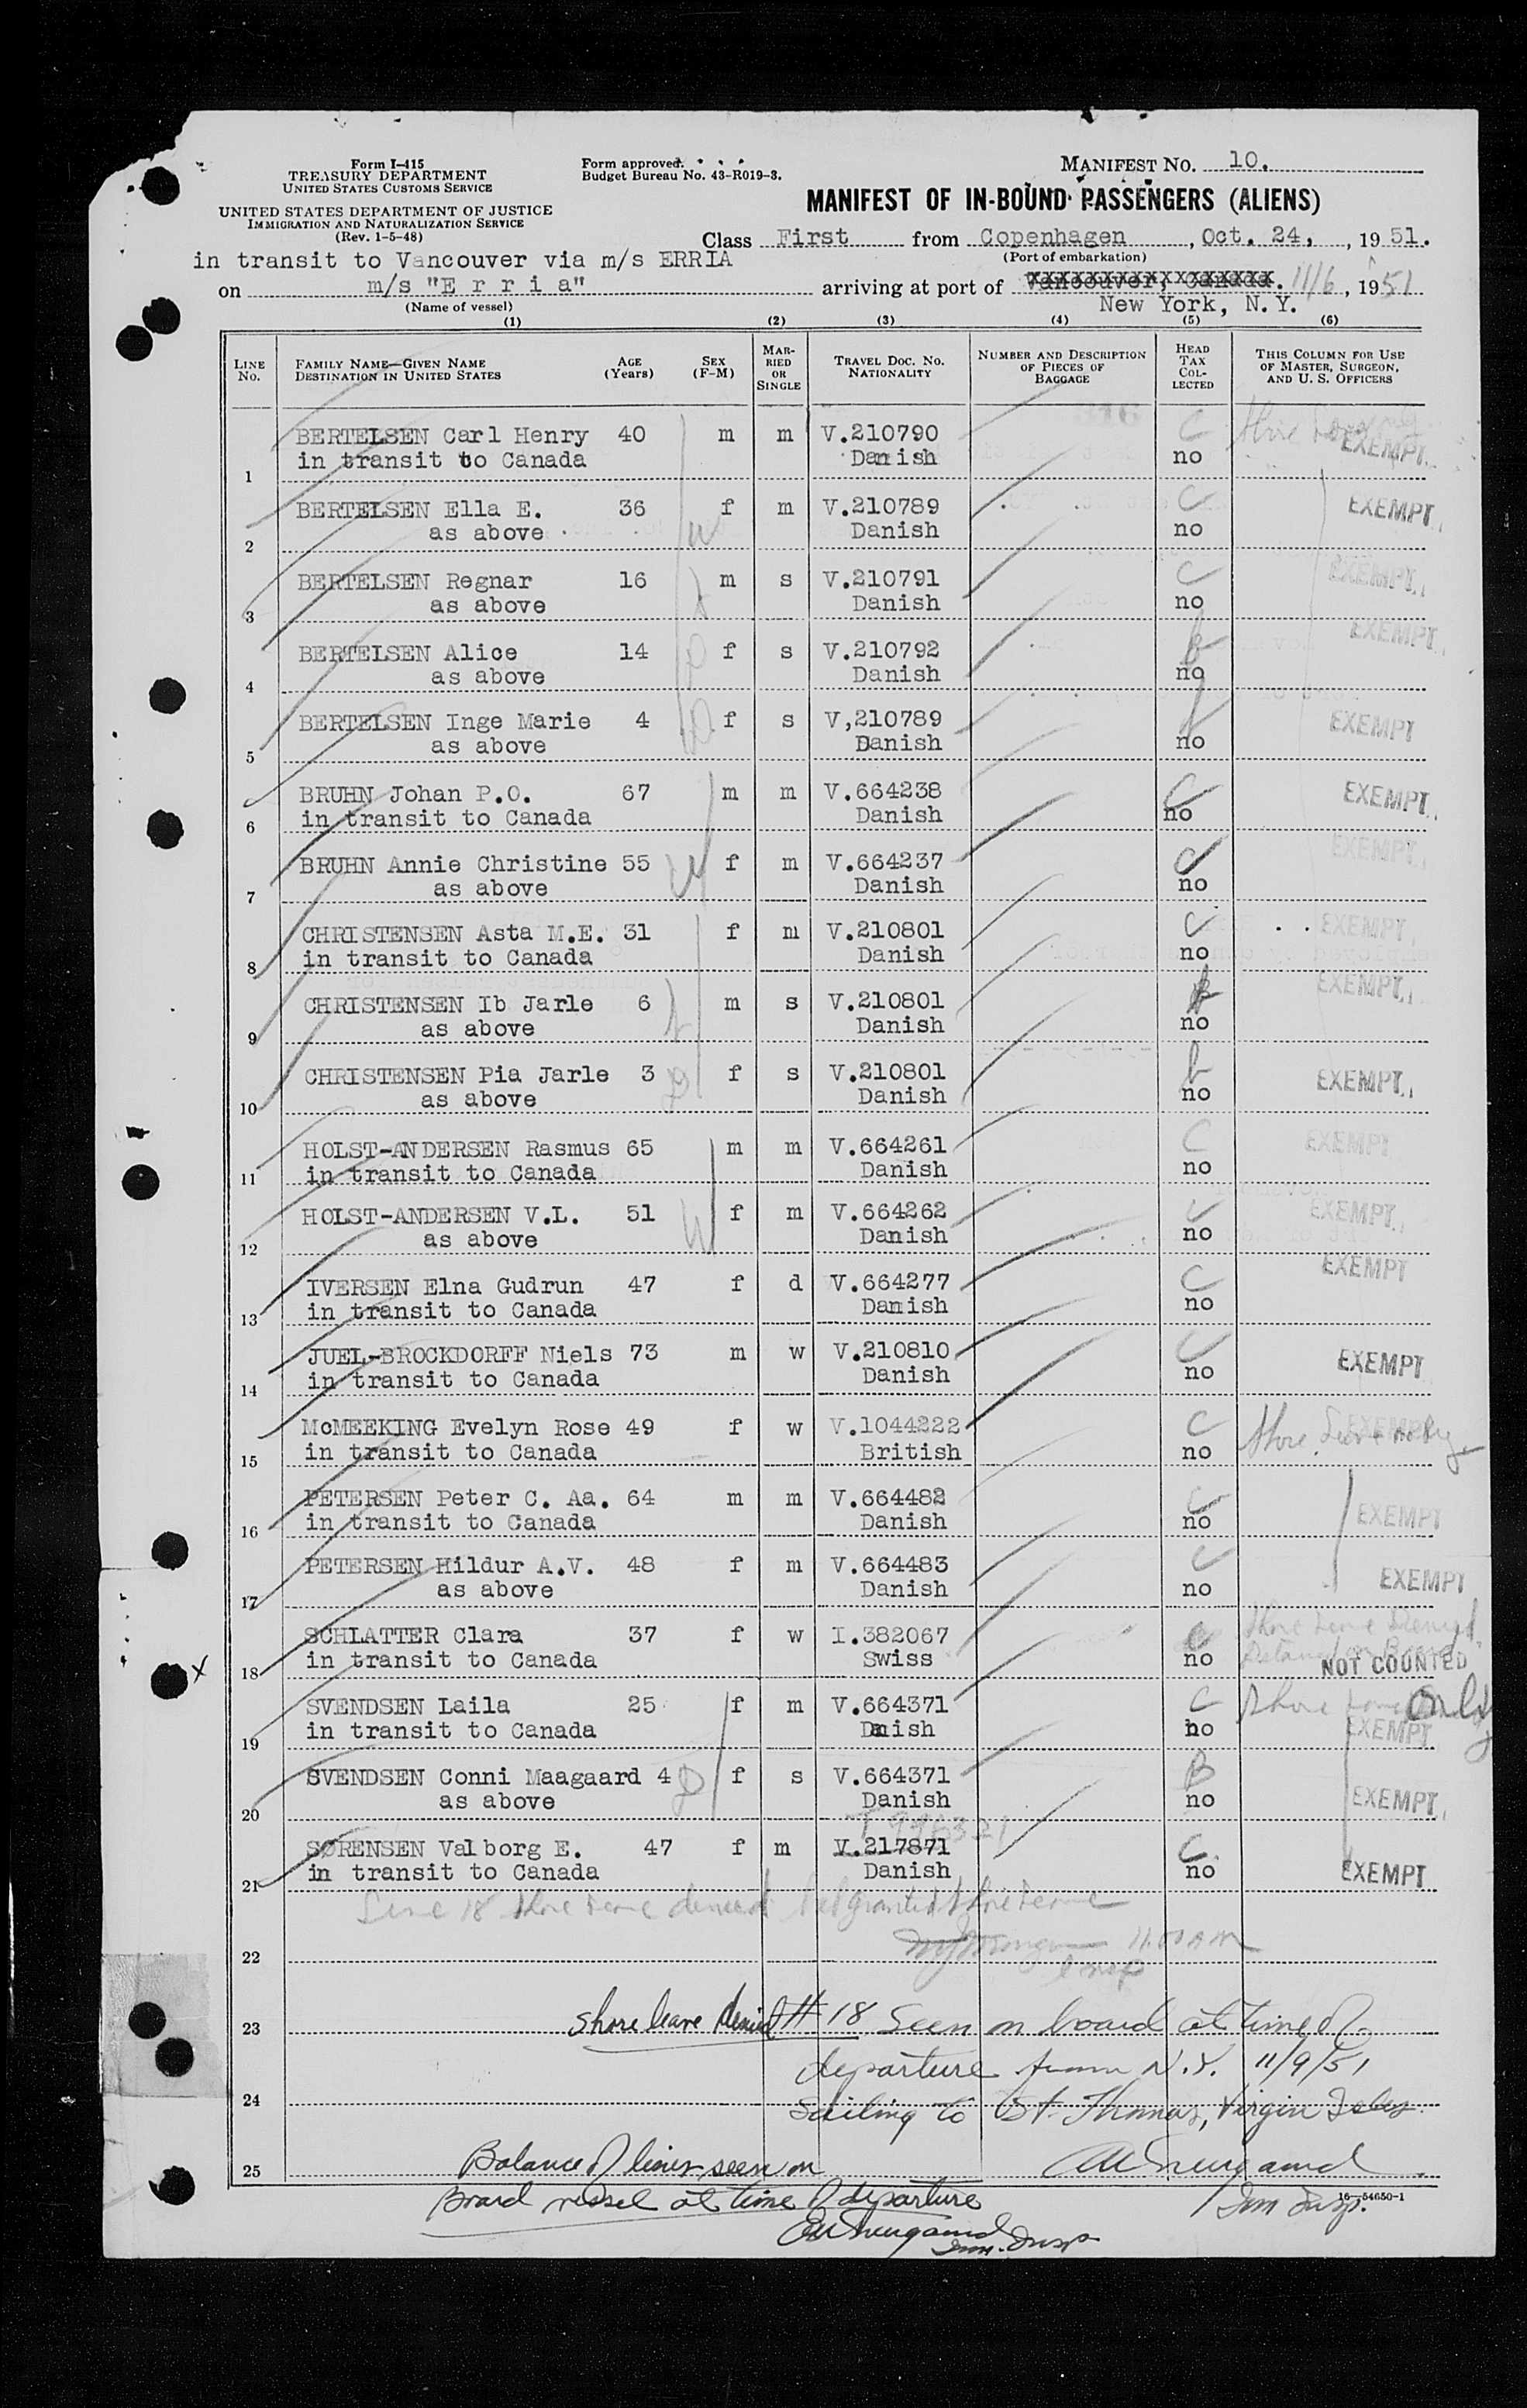 Form I-415
TREASURY DEPARTMENT
UNITED STATES CUSTOMS SERVICE
UNITED STATES DEPARTMENT OF JUSTICE
IMMIGRATION AND NATURALIZATION SERVICE
(Rev. 1-5-48)
Form approved.
Budget Bureau No. 43-R019-3.
MANIFEST NO. 10.
MANIFEST OF IN-BOUND PASSENGERS (ALIENS)
Class First from Copenhagen, Oct. 24, , 19 51.
(Port of embarkation)
in transit to Vancouver via m/s ERRIA
on m/s "E r r i a" arriving at port of Vancouver, Canada. 11/6, 1951
(Name of vessel) New York, N.Y.
(1) (2) (3) (4) (5) (6)
LINE No. FAMILY NAME—GIVEN NAME DESTINATION IN UNITED STATES AGE (Years) SEX (F-M) MARRIED OR SINGLE TRAVEL DOC. NO. NATIONALITY NUMBER AND DESCRIPTION OF PIECES OF BAGGAGE HEAD TAX COLLECTED THIS COLUMN FOR USE OF MASTER, SURGEON, AND U. S. OFFICERS
BERTELSEN Carl Henry 40 m m V.210790 C EXEMPT
1 in transit to Canada Danish no
BERTELSEN Ella E. 36 f m V.210789 C EXEMPT
2 as above W Danish no
BERTELSEN Regnar 16 m s V.210791 C EXEMPT
3 as above Danish no
BERTELSEN Alice 14 f s V.210792 B EXEMPT
4 as above Danish no
BERTELSEN Inge Marie 4 f s V,210789 EXEMPT
5 as above Danish no
BRUHN Johan P.O. 67 m m V.664238 C EXEMPT
6 in transit to Canada Danish no
BRUHN Annie Christine 55 W f m V.664237 C EXEMPT
7 as above Danish no
CHRISTENSEN Asta M.E. 31 f m V.210801 C EXEMPT
8 in transit to Canada Danish no
CHRISTENSEN Ib Jarle 6 m s V.210801 EXEMPT
9 as above Danish no
CHRISTENSEN Pia Jarle 3 f s V.210801 b EXEMPT
10 as above Danish no
HOLST-ANDERSEN Rasmus 65 m m V.664261 C EXEMPT
11 in transit to Canada Danish no
HOLST-ANDERSEN V.L. 51 W f m V.664262 C EXEMPT
12 as above Danish no
IVERSEN Elna Gudrun 47 f d V.664277 C EXEMPT
13 in transit to Canada Danish no
JUEL-BROCKDORFF Niels 73 m w V.210810 C EXEMPT
14 in transit to Canada Danish no
McMEEKING Evelyn Rose 49 f w V.1044222 C EXEMPT
15 in transit to Canada British no Shore Leave only
PETERSEN Peter C. Aa. 64 m m V.664482 C EXEMPT
16 in transit to Canada Danish no
PETERSEN Hildur A.V. 48 f m V.664483 C EXEMPT
17 as above Danish no
SCHLATTER Clara 37 f w I.382067 C Shore Leave Denied
18 X in transit to Canada Swiss no NOT COUNTED
SVENDSEN Laila 25 f m V.664371 C Shore Leave Only
19 in transit to Canada Danish no EXEMPT
SVENDSEN Conni Maagaard 4 f s V.664371 B
20 as above Danish no EXEMPT
SØRENSEN Valborg E. 47 f m V.217871 C
21 in transit to Canada Danish no EXEMPT
Line 18 shore leave denied granted shore leave
22 11.00 AM
23 shore leave denied # 18 Seen on board at time of
departure from N.Y. 11/9/51
24 Sailing to St. Thomas, Virgin Isles
25 Balance of lines seen on
Board vessel at time of departure
Imm Insp. 16—54650-1
Imm. Insp